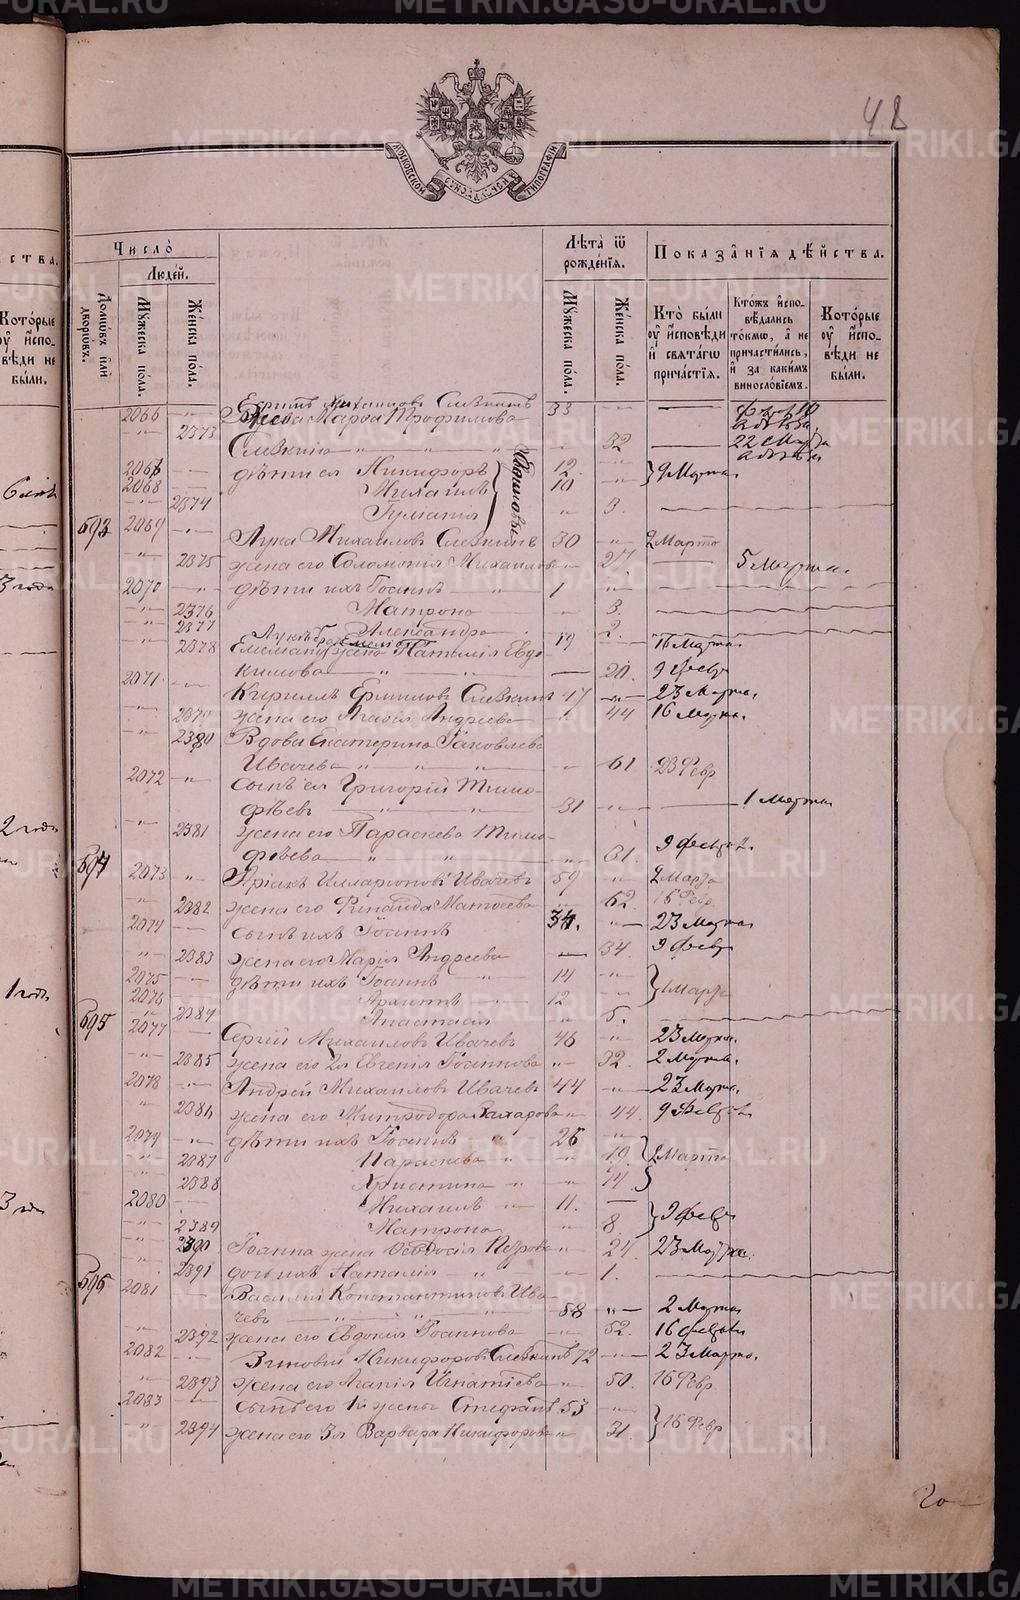 METRIKI.GASO-URAL.RU
48
МОСКОВСКОЙ СѴНОДАЛЬНОЙ ТИПОГРАФІИ
Число̀
Людей.
Домѡвъ и҆лѝ дворѡвъ.
Мꙋжеска пола.
Женска пола.
Лѣта ѿ рожденїѧ.
Мꙋжеска пола.
Женска пола.
Показанїѧ дѣйства.
Кто̀ были оу҆ и҆сповѣди и҆ свѧтагѡ причастїѧ.
Ктожъ и҆сповѣдались токмѡ, а҆ не причастились, и҆ за какимъ винословїемъ.
Которые оу҆ и҆сповѣди не были.
ства.
Которые оу҆ и҆сповѣди не были.
2066 Михаиловъ Слѣвкинъ 33
2373 Марѳа Трофимова
Слѣвкина 32 22 Марта
2067 дѣти ея Никифоръ 12 9 Марта
2068 Михаилъ 10
2374 3
693 2069 Лука Михаиловъ Слѣвкинъ 30 2 Марта
2375 жена его Соломонія Михаилова 27 5 Марта
2070 дѣти ихъ Іоаннъ 1
2376 Матрона 3
2377 Александра 2
2378 жена Наталія Евдо 19 16 Марта
кимова 20 9 февр
2071 Кириллъ Ермиловъ Слѣвкинъ 47 23 Марта
2379 жена его Агаѳія Андреева 44 16 Марта
2380 Вдова Екатерина Іаковлева
Ивачева 61 23 Февр
2072 сынъ ея Григорій Тимо
ѳѣевъ 31 1 Марта
2381 жена его Параскева Тимо
ѳѣева 61 9 февр
694 2073 Илларіоновъ Ивачевъ 59 2 Марта
2382 жена его Зинаида Матвѣева 62 16 Февр
2074 сынъ ихъ Іоаннъ 34 23 Марта
2383 жена его Марія Андреева 34 9 февр
2075 дѣти ихъ Іоаннъ 14 1 Марта
2076 12
2384 Анастасія 5
695 2077 Сергій Михаиловъ Ивачевъ 46 23 Марта
2385 жена его 2я Евгенія Іоаннова 32 2 Марта
2078 Андрей Михаиловъ Ивачевъ 44 23 Марта
2386 жена его Митродора Захарова 44 9 Февр
2079 дѣти ихъ Іоаннъ 26
2387 Параскева 19 2 Марта
2388 Христина 14
2080 Михаилъ 11
2389 Матрона 8 9 февр
2390 Іоанна жена Ѳеодосія Петрова 24 23 Марта
2391 дочь ихъ Наталія 1
696 2081 Василій Константиновъ Ива
чевъ 58 2 Марта
2392 жена его Евдокія Іоаннова 52 16 февр
2082 Зиновій Никифоровъ Слѣвкинъ 72 23 Марта
2393 жена его Агапія Игнатіева 50 16 Февр
2083 сынъ его 1й жены Стефанъ 53
2394 жена его 3я Варвара Никифорова 31 16 Февр